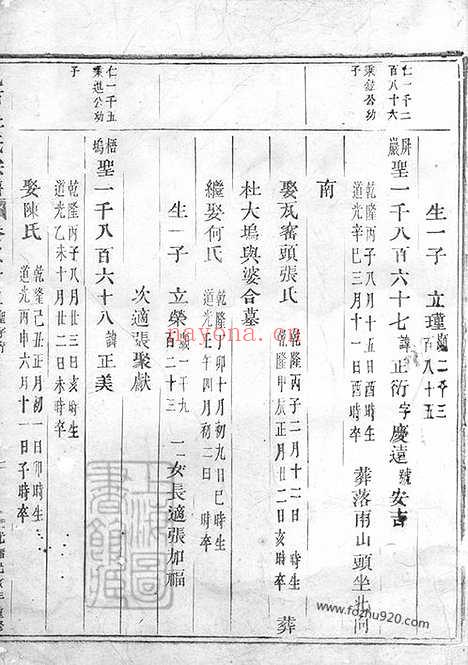 生一子 立瑾 顯二千三百八十五
仁一千二百八十六
秉鉞公功
子
屏巖 聖一千八百六十七 諱正衍字慶遠號安吉
乾隆丙子八月十五日酉時生
道光辛巳三月十八日 時卒
葬落雨山頭坐北向
南
娶瓦窑頭張氏
乾隆丙子二月十二日 時生
隆甲辰正月廿二日亥時卒
葬
杜大塢與婆合墓
繼娶何氏
乾隆丁卯十月初九日巳時生
道光 午四月初二日 時卒
生一子 立榮 千九百二十三
二女長適張加福
次適張聚獻
仁一千五
秉進公功
子
梧塢 聖一千八百六十八 諱正美
乾隆丙子八月廿三日亥時生
道光乙未十月廿二日未時卒
娶陳氏
乾隆己丑正月初一日卯時生
道光丙申六月十一日 時卒
上海圖書館藏
nayona.cn
www.fozhu920.com